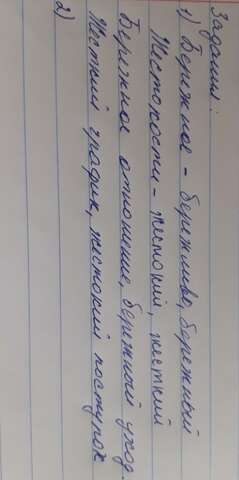 Задания:
1) Бережное - бережливо, бережный
Жестокости - жестокий, жесткий
Бережное отношение, бережный уход.
Жесткий график, жестокий поступок
2)